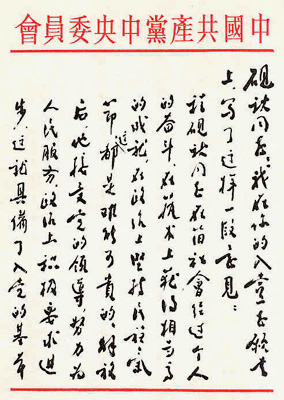 中國共產黨中央委員會
硯秋同志：我在你的入党志愿书
上，写了这样一段意见：
程硯秋同志在旧社會经过个人
的奋斗，在艺术上获得相当高
的成就，在政治上坚持民族气
节，这都是难能可贵的。解放
后，他接受党的领導，努力为
人民服务，政治上积极要求进
步，这就具備了入党的基本